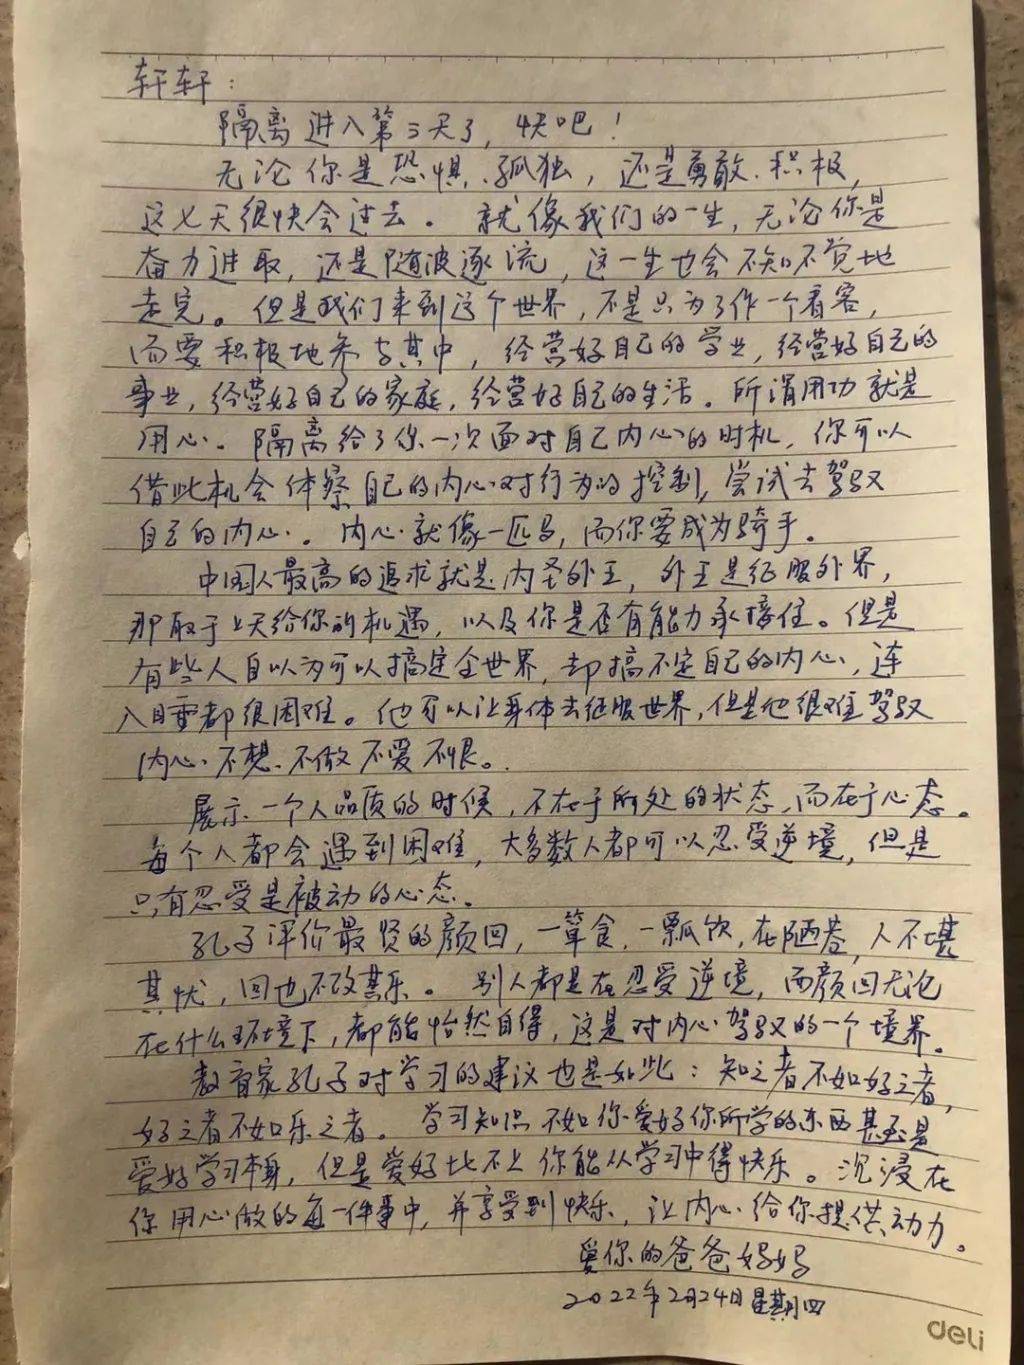 轩轩：
隔离进入第三天了，4天吧！
无论你是恐惧、孤独，还是勇敢、积极，
这七天很快会过去。就像我们的一生，无论你是
奋力进取，还是随波逐流，这一生也会不知不觉地
走完。但是我们来到这个世界，不是只为了作一个看客，
而要积极地参与其中，经营好自己的学业，经营好自己的
事业，经营好自己的家庭，经营好自己的生活。所谓用功就是
用心。隔离给了你一次面对自己内心的时机，你可以
借此机会体察自己的内心对行为的控制，尝试去驾驭
自己的内心。内心就像一匹马，而你要成为骑手。
中国人最高的追求就是内圣外王，外王是征服外界，
那取于上天给你的机遇，以及你是否有能力承接住。但是
有些人自以为可以搞定全世界，却搞不定自己的内心，连
入睡都很困难。他可以让身体去征服世界，但是他很难驾驭
内心不想、不做不爱不恨。
展示一个人品质的时候，不在于所处的状态，而在于心态。
每个人都会遇到困难，大多数人都可以忍受逆境，但是
只有忍受是被动的心态。
孔子评价最贤的颜回，一箪食，一瓢饮，在陋巷，人不堪
其忧，回也不改其乐。别人都是在忍受逆境，而颜回无论
在什么环境下，都能怡然自得，这是对内心驾驭的一个境界。
教育家孔子对学习的建议也是如此：知之者不如好之者，
好之者不如乐之者。学习知识不如你爱好你所学的东西甚至是
爱好学习本身，但是爱好比不上你能从学习中得快乐。沉浸在
你用心做的每一件事中，并享受到快乐，让内心给你提供动力。
爱你的爸爸妈妈
2022年2月24日星期四
deli